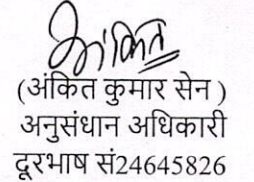 अंकित
(अंकित कुमार सेन )
अनुसंधान अधिकारी
दूरभाष सं24645826